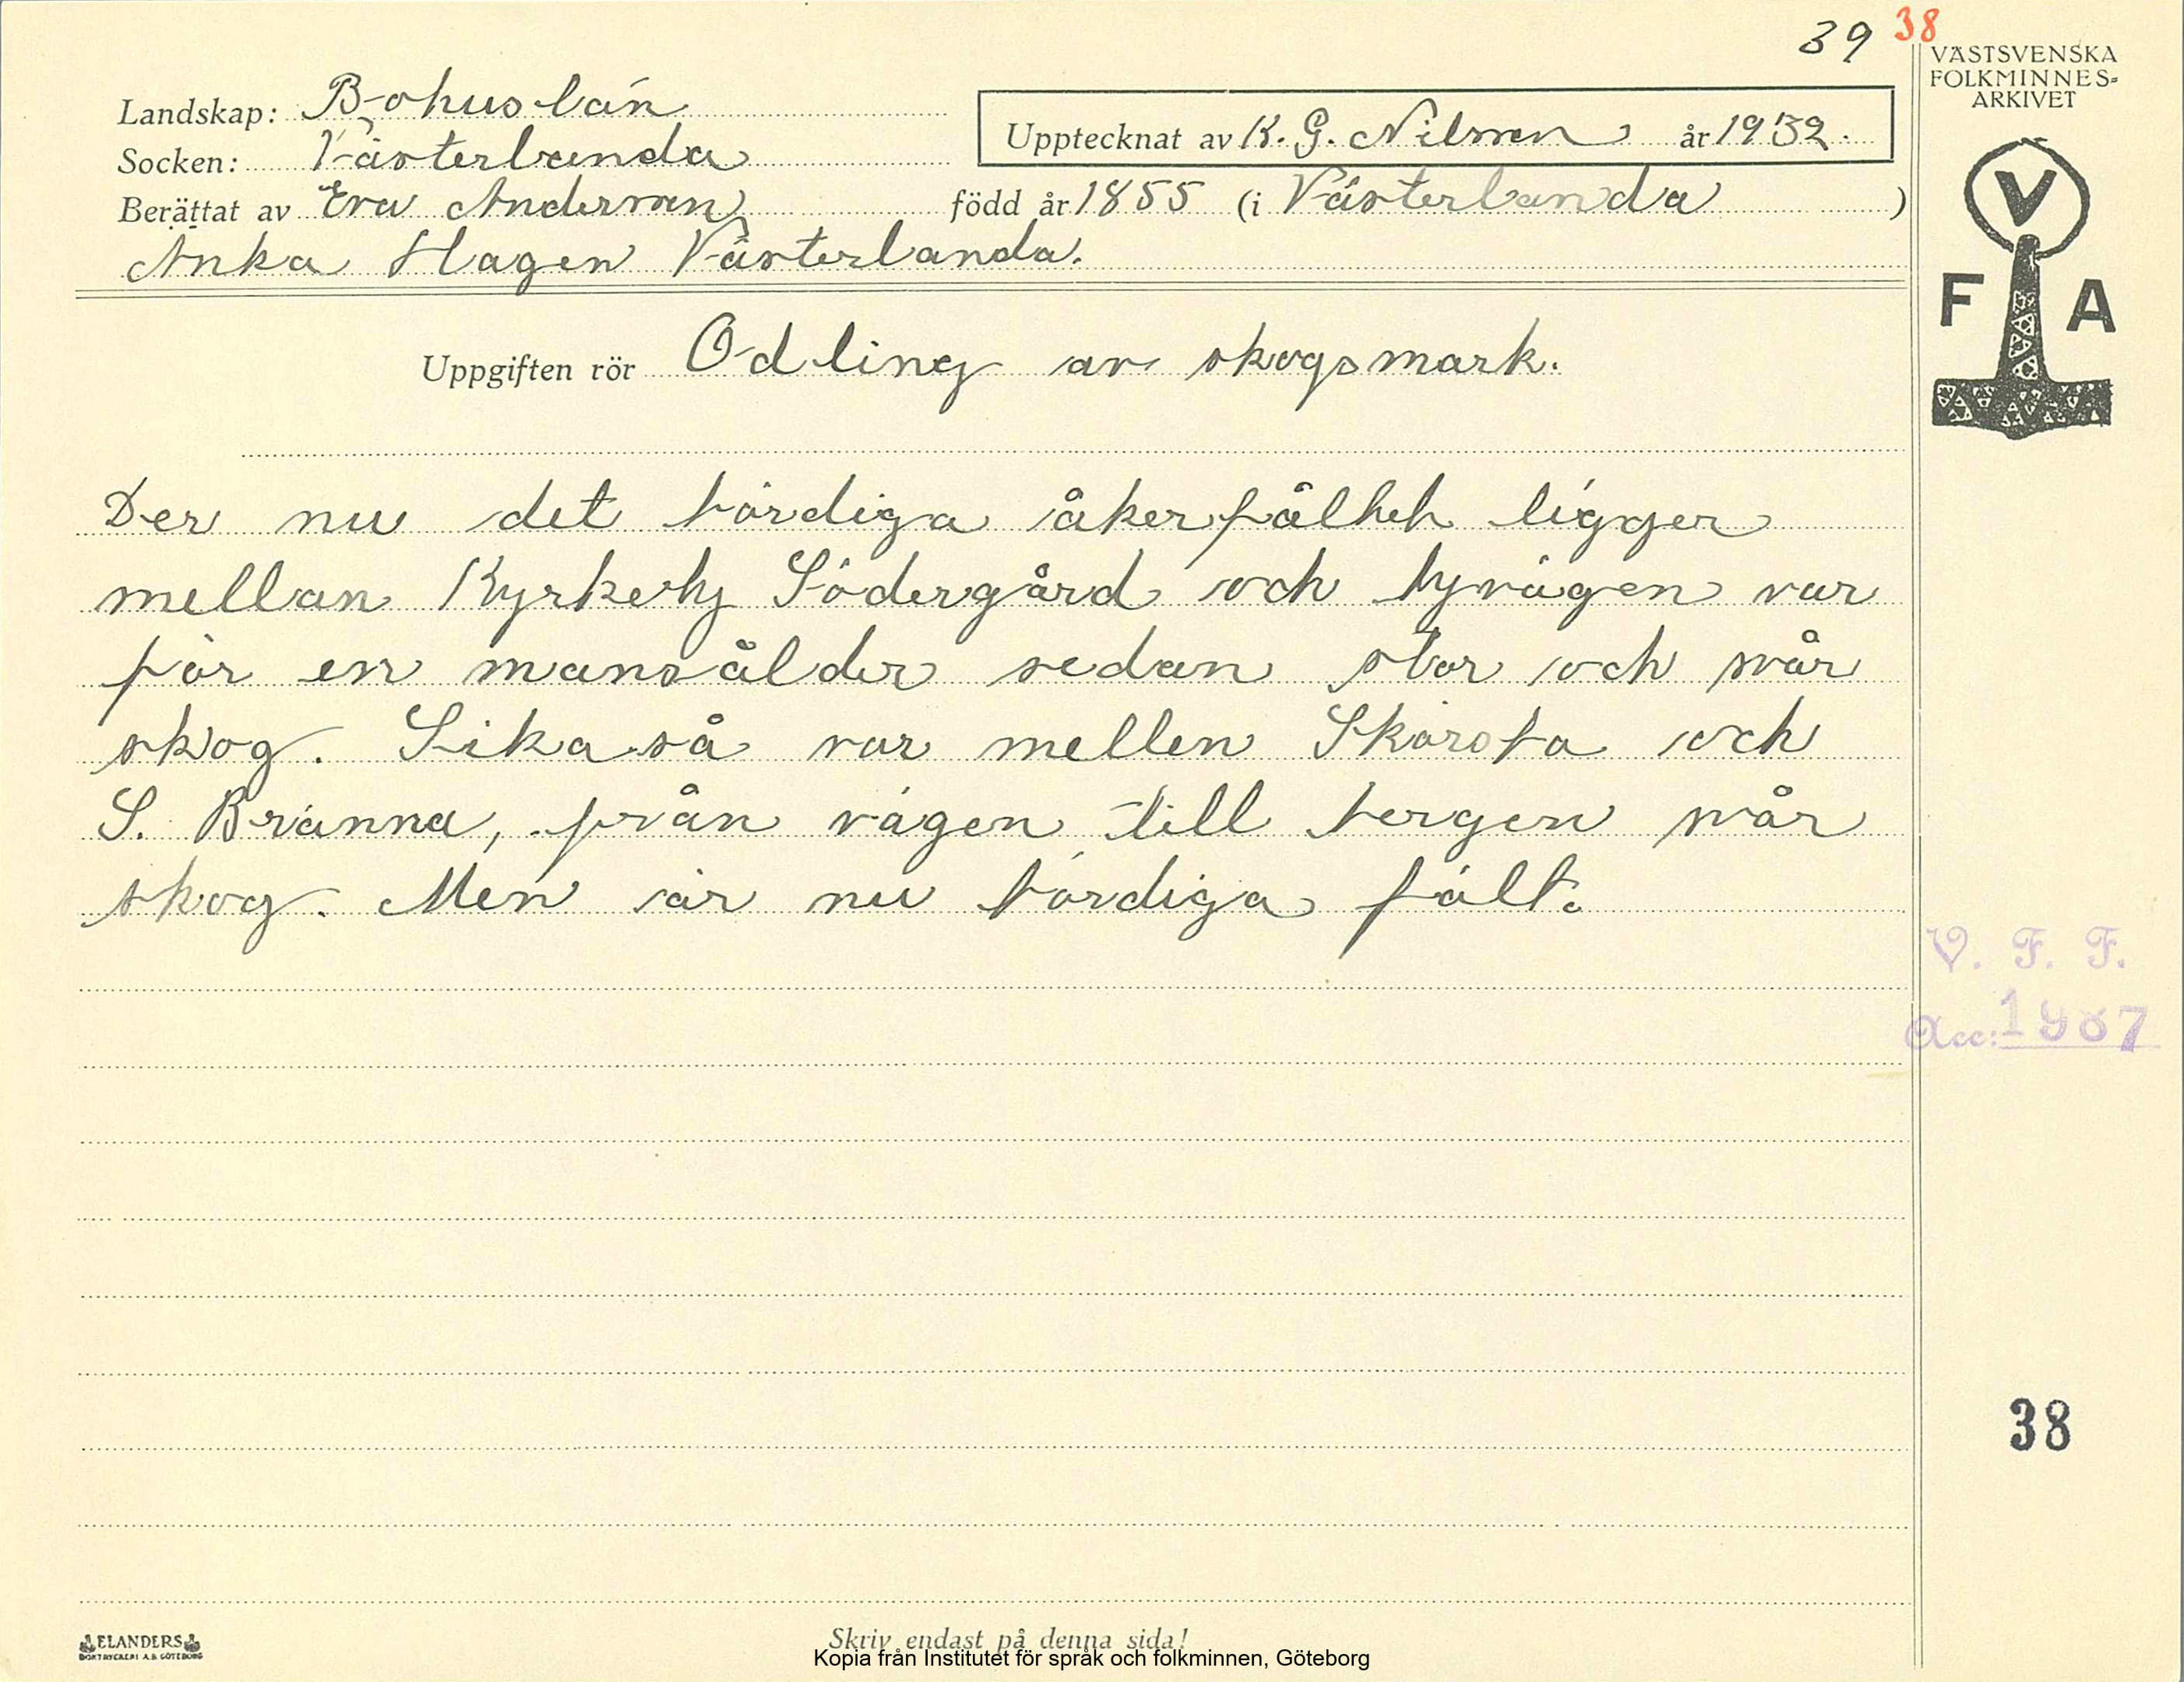 39 38
VÄSTSVENSKA
FOLKMINNES-
ARKIVET
Landskap: Bohuslän
Upptecknat av K. G. Nilsson år 1932.
Socken: Västerlanda
Berättat av Eva Andersson född år 1855 (i Västerlanda )
Anka Hagen Västerlanda.
V
F A
Uppgiften rör Odling av skogsmark.
Der nu det bördiga åkerfälltet ligger
mellan Kyrkeby Södergård och byvägen var
för en mansålder sedan stor och svår
skog. Likaså var mellen Skårsta och
S. Bränna, från vägen till bergen svår
skog. Men är nu bördiga fält.
V. F. F.
Acc: 1987
38
ELANDERS
BOKTRYCKERI A.B. GÖTEBORG
Skriv endast på denna sida!
Kopia från Institutet för språk och folkminnen, Göteborg